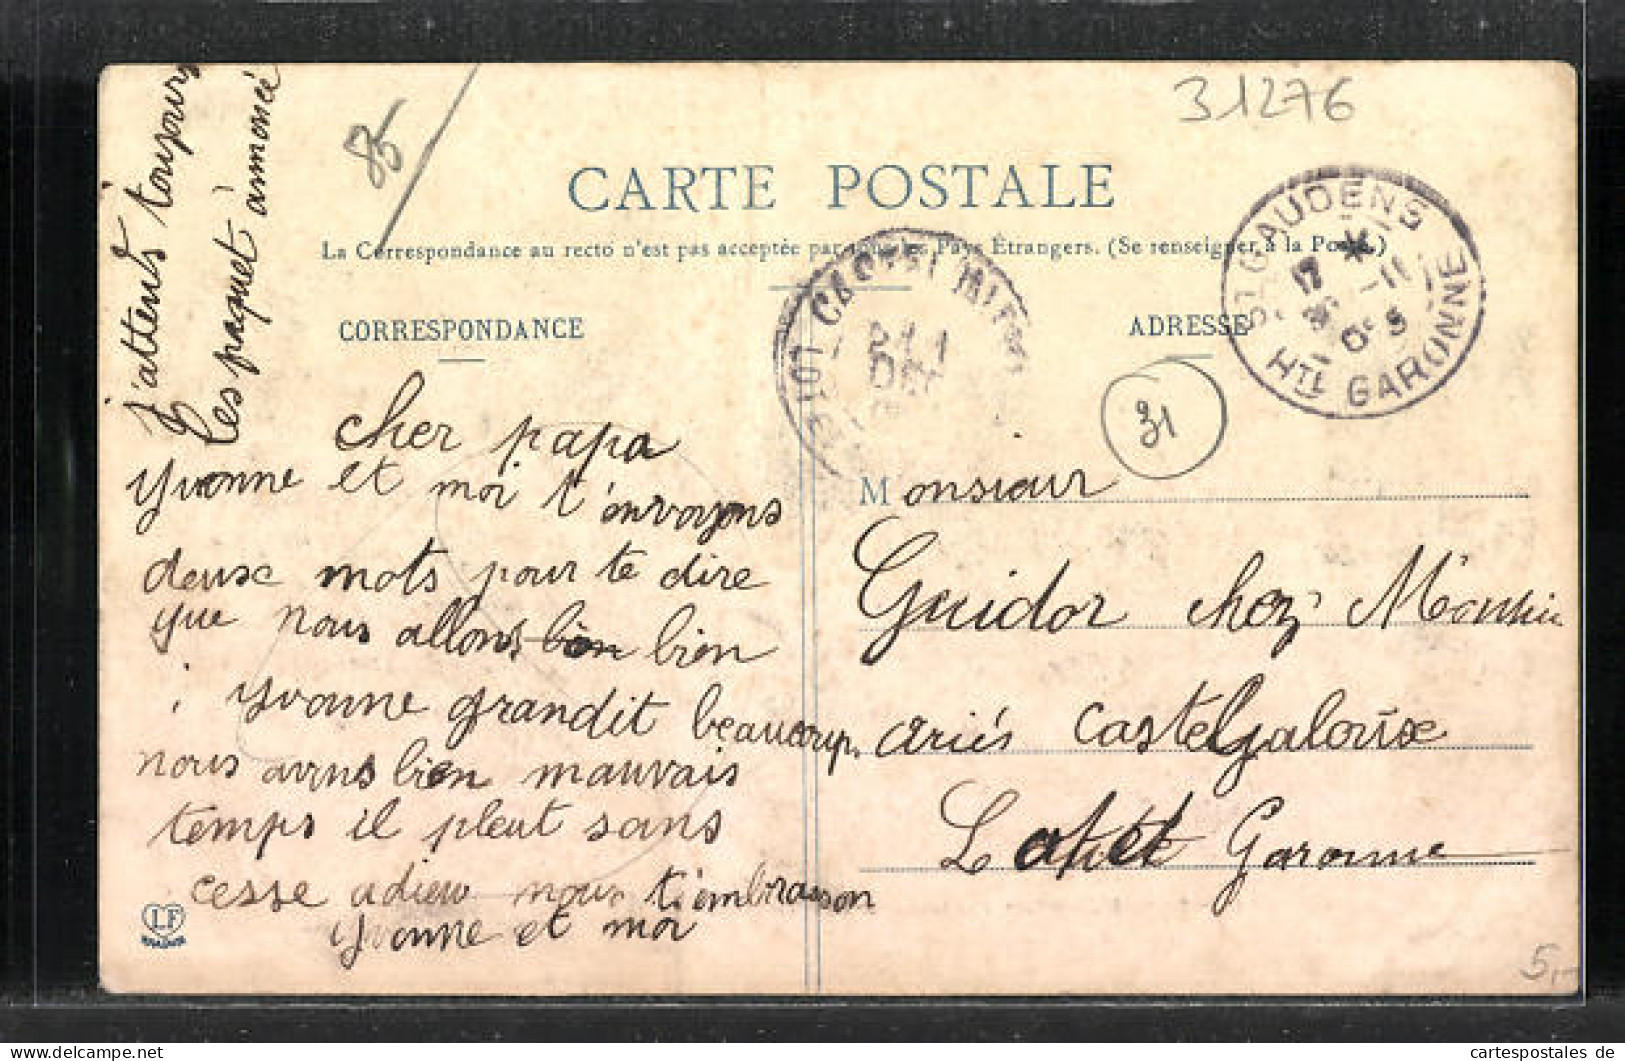 31276
85
CARTE POSTALE
La Correspondance au recto n'est pas acceptée par tous les Pays Étrangers. (Se renseigner à la Poste.)
CORRESPONDANCE
ADRESSE
ST GAUDENS
HTE GARONNE
31
j'attens toujours
les paquet annoncé
cher papa
Yvonne et moi t'envoyons
deuse mots pour te dire
que nous allons bien bien
Yvonne grandit beaucoup.
nous avons bien mauvais
temps il pleut sans
cesse adieu nous t'embrasson
Yvonne et moi
Monsieur
Guidor chez
ariés Castelgalouse
Lot et Garonne
LF
5,-
cartespostales de
www.delcampe.net